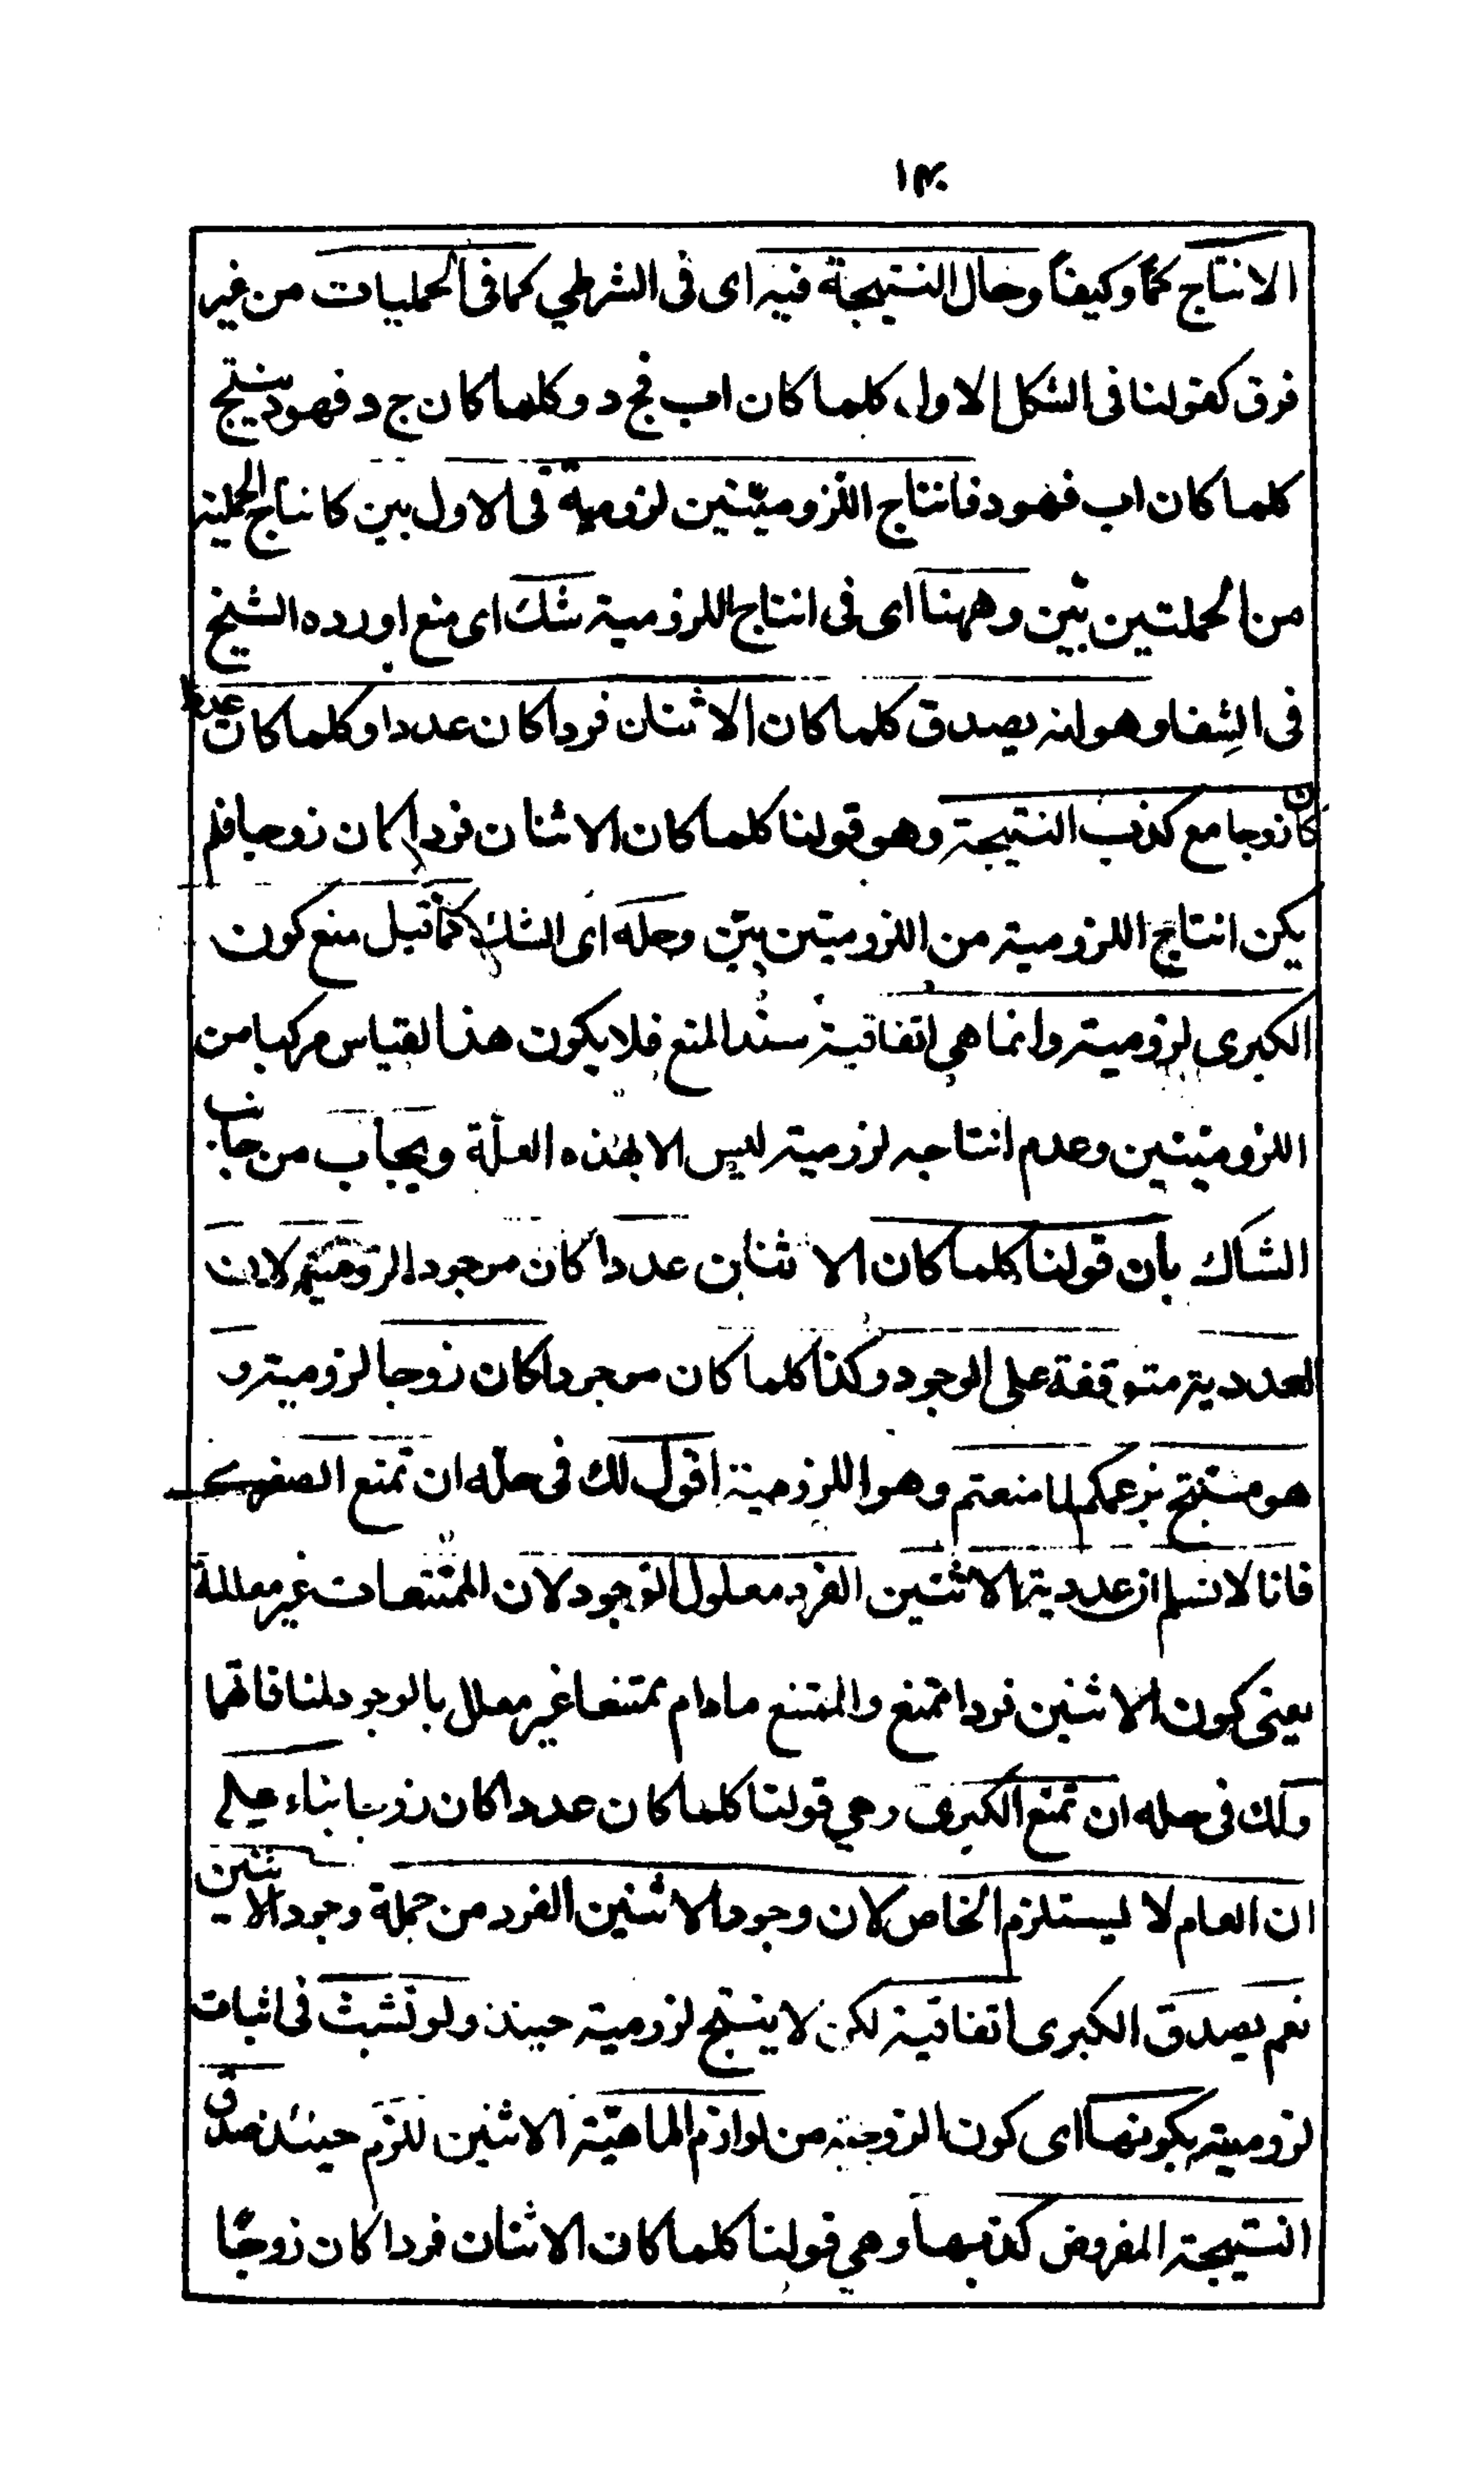 ١٣٠
الانتاج كمًّا وكيفًا وحال النتيجة فيه اى فى الشرطي كما فى الحمليات من غير
فرق كقولنا فى الشكل الاول كلما كان اب فج د وكلما كان ج د فهو د ينتج
كلما كان اب فهو د فانتاج اللزوميتين لزومية فى الاول بين كانتاج الحملية
من الحملتين بيّن وههنا اى فى انتاج اللزومية شك اى منع اورده الشيخ
فى الشفا وهو انه يصدق كلما كان الاثنان فردا كان عددا وكلما كان عددا
كان زوجا مع كذب النتيجة وهو قولنا كلما كان الاثنان فردا كان زوجا فلم
يكن انتاج اللزومية من اللزوميتين بيّن وحله اى الشك كما قيل منع كون
الكبرى لزومية وانما هى اتفاقية سند المنع فلا يكون هذا لقياس مركبا من
اللزوميتين وعدم انتاجه لزومية ليس الا بهذه العلّة ويجاب من جانب
الشاك بأن قولنا كلما كان الاثنان عددا كان موجود الزومية لان
العددية متوقفة على الوجود وكذا كلما كان موجودا كان زوجا لزومية و
هو مستنتج بزعمكم لما منعتم وهو اللزومية اقول لك فى حلّه ان تمنع الصغرى
فانا لا نسلم ان عددية الاثنين الفرد معلول الوجود لان الممتنعات غير معللة
يعنى كون الاثنين فردا ممتنع والممتنع مادام ممتنعا غير معلل بالوجود لمنافاتهما
ولك فى حله ان تمنع الكبرى وهي قولنا كلما كان عددا كان زوجا بناء على
ان العام لا يستلزم الخاص لان وجود الاثنين الفرد من جملة وجود الاثنين
نعم يصدق الكبرى اتفاقية لكن لا ينتج لزومية حينئذ ولو تشبث فى اثبات
لزومية بكونها اى كون الزوجية من لوازم الماهيّة الاثنين للزم حينئذ صدق
النتيجة المفروض كذبها وهي قولنا كلما كان الاثنان فردا كان زوجًا